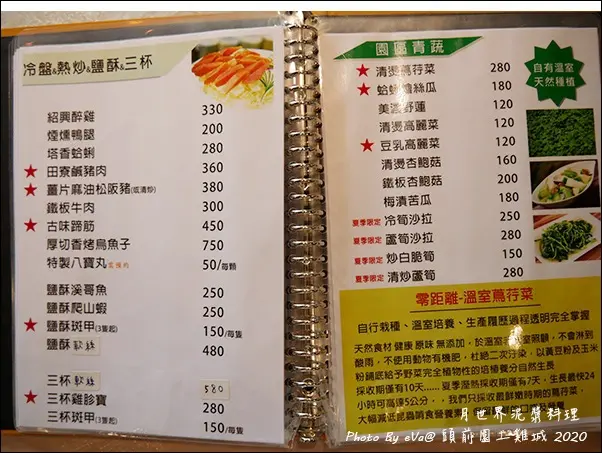 冷盤&熱炒&鹽酥&三杯
紹興醉雞 330
煙燻鴨腿 200
塔香蛤蜊 280
★ 田寮鹹豬肉 360
★ 薑片麻油松阪豬(或清炒) 380
鐵板牛肉 300
★ 古味蹄筋 450
厚切香烤烏魚子 750
特製八寶丸 50/每顆
鹽酥溪哥魚 250
鹽酥爬山蝦 250
★ 鹽酥斑甲(3隻起) 150/每隻
鹽酥 軟絲 480
三杯 軟絲 580
★ 三杯雞診寶 280
三杯斑甲(3隻起) 150/每隻
園區青蔬
★ 清燙蔦荇菜 280
★ 蛤蜊燴絲瓜 180
美濃野蓮 120
清燙高麗菜 120
★ 豆乳高麗菜 160
清燙杏鮑菇 160
鐵板杏鮑菇 200
梅漬苦瓜 180
夏季限定 冷筍沙拉 250
夏季限定 蘆筍沙拉 280
夏季限定 炒白脆筍 150
夏季限定 清炒蘆筍 280
自有溫室
天然種植
零距離-溫室蔦荇菜
自行栽種、溫室培養、生產履歷過程透明完全掌握
天然食材 健康 原味 無添加，於溫室
不會淋到
酸雨，不使用動物有機肥，杜絕二次汙染，以黃豆粉及玉米
粉餵底給予野菜完全植物性的培養養分自然生長
採收期僅有10天......夏季溼熱採收期僅有7天，生長最快24
小時可高達5公分，，我們只採收最鮮嫩時期的蔦荇菜，
月世界泥漿料理
Photo By eVa@ 頭前園土雞城 2020